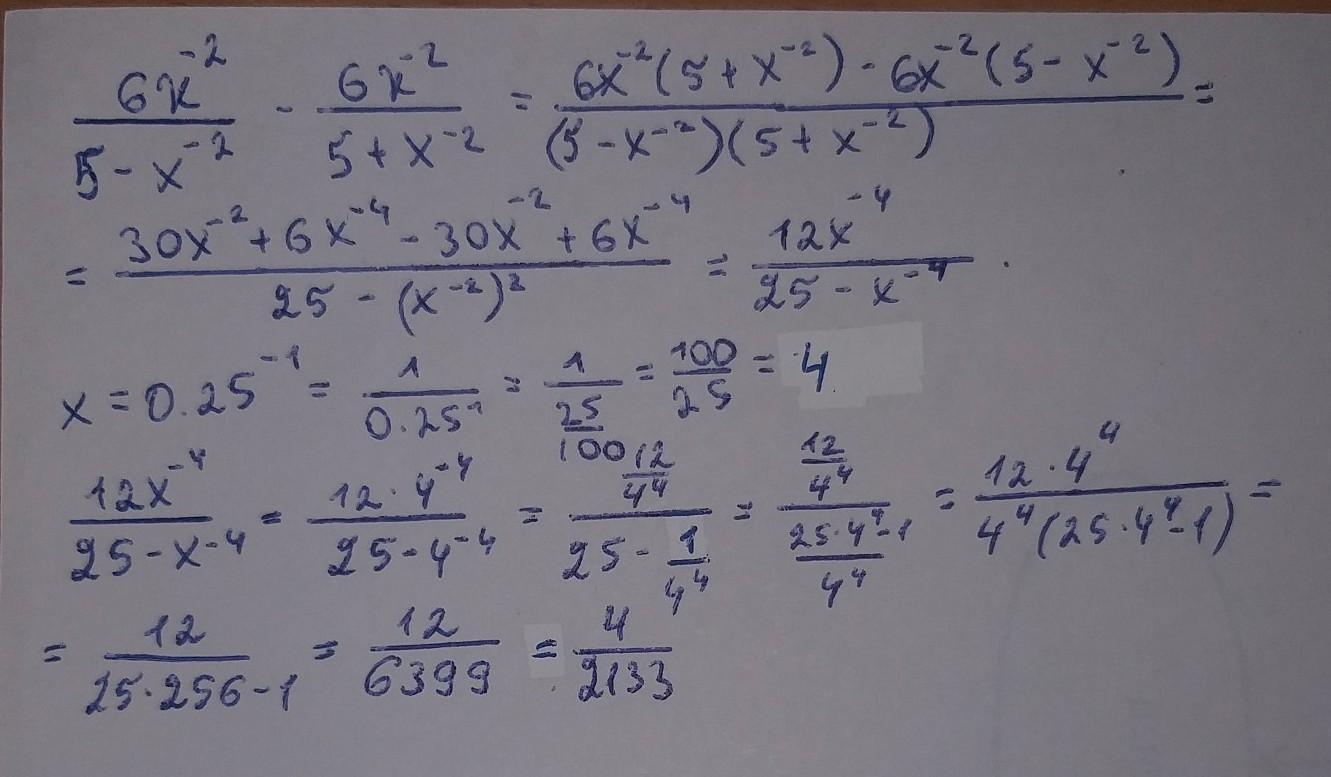 6x⁻²/(5-x⁻²) - 6x⁻²/(5+x⁻²) = (6x⁻²(5+x⁻²) - 6x⁻²(5-x⁻²))/((5-x⁻²)(5+x⁻²)) =
= (30x⁻²+6x⁻⁴-30x⁻²+6x⁻⁴)/(25-(x⁻²)²) = 12x⁻⁴/(25-x⁻⁴).
x = 0.25⁻¹ = 1/0.25¹ = 1/(25/100) = 100/25 = 4
12x⁻⁴/(25-x⁻⁴) = 12·4⁻⁴/(25-4⁻⁴) = (12/4⁴)/(25-1/4⁴) = (12/4⁴)/((25·4⁴-1)/4⁴) = 12·4⁴/(4⁴(25·4⁴-1)) =
= 12/(25·256-1) = 12/6399 = 4/2133